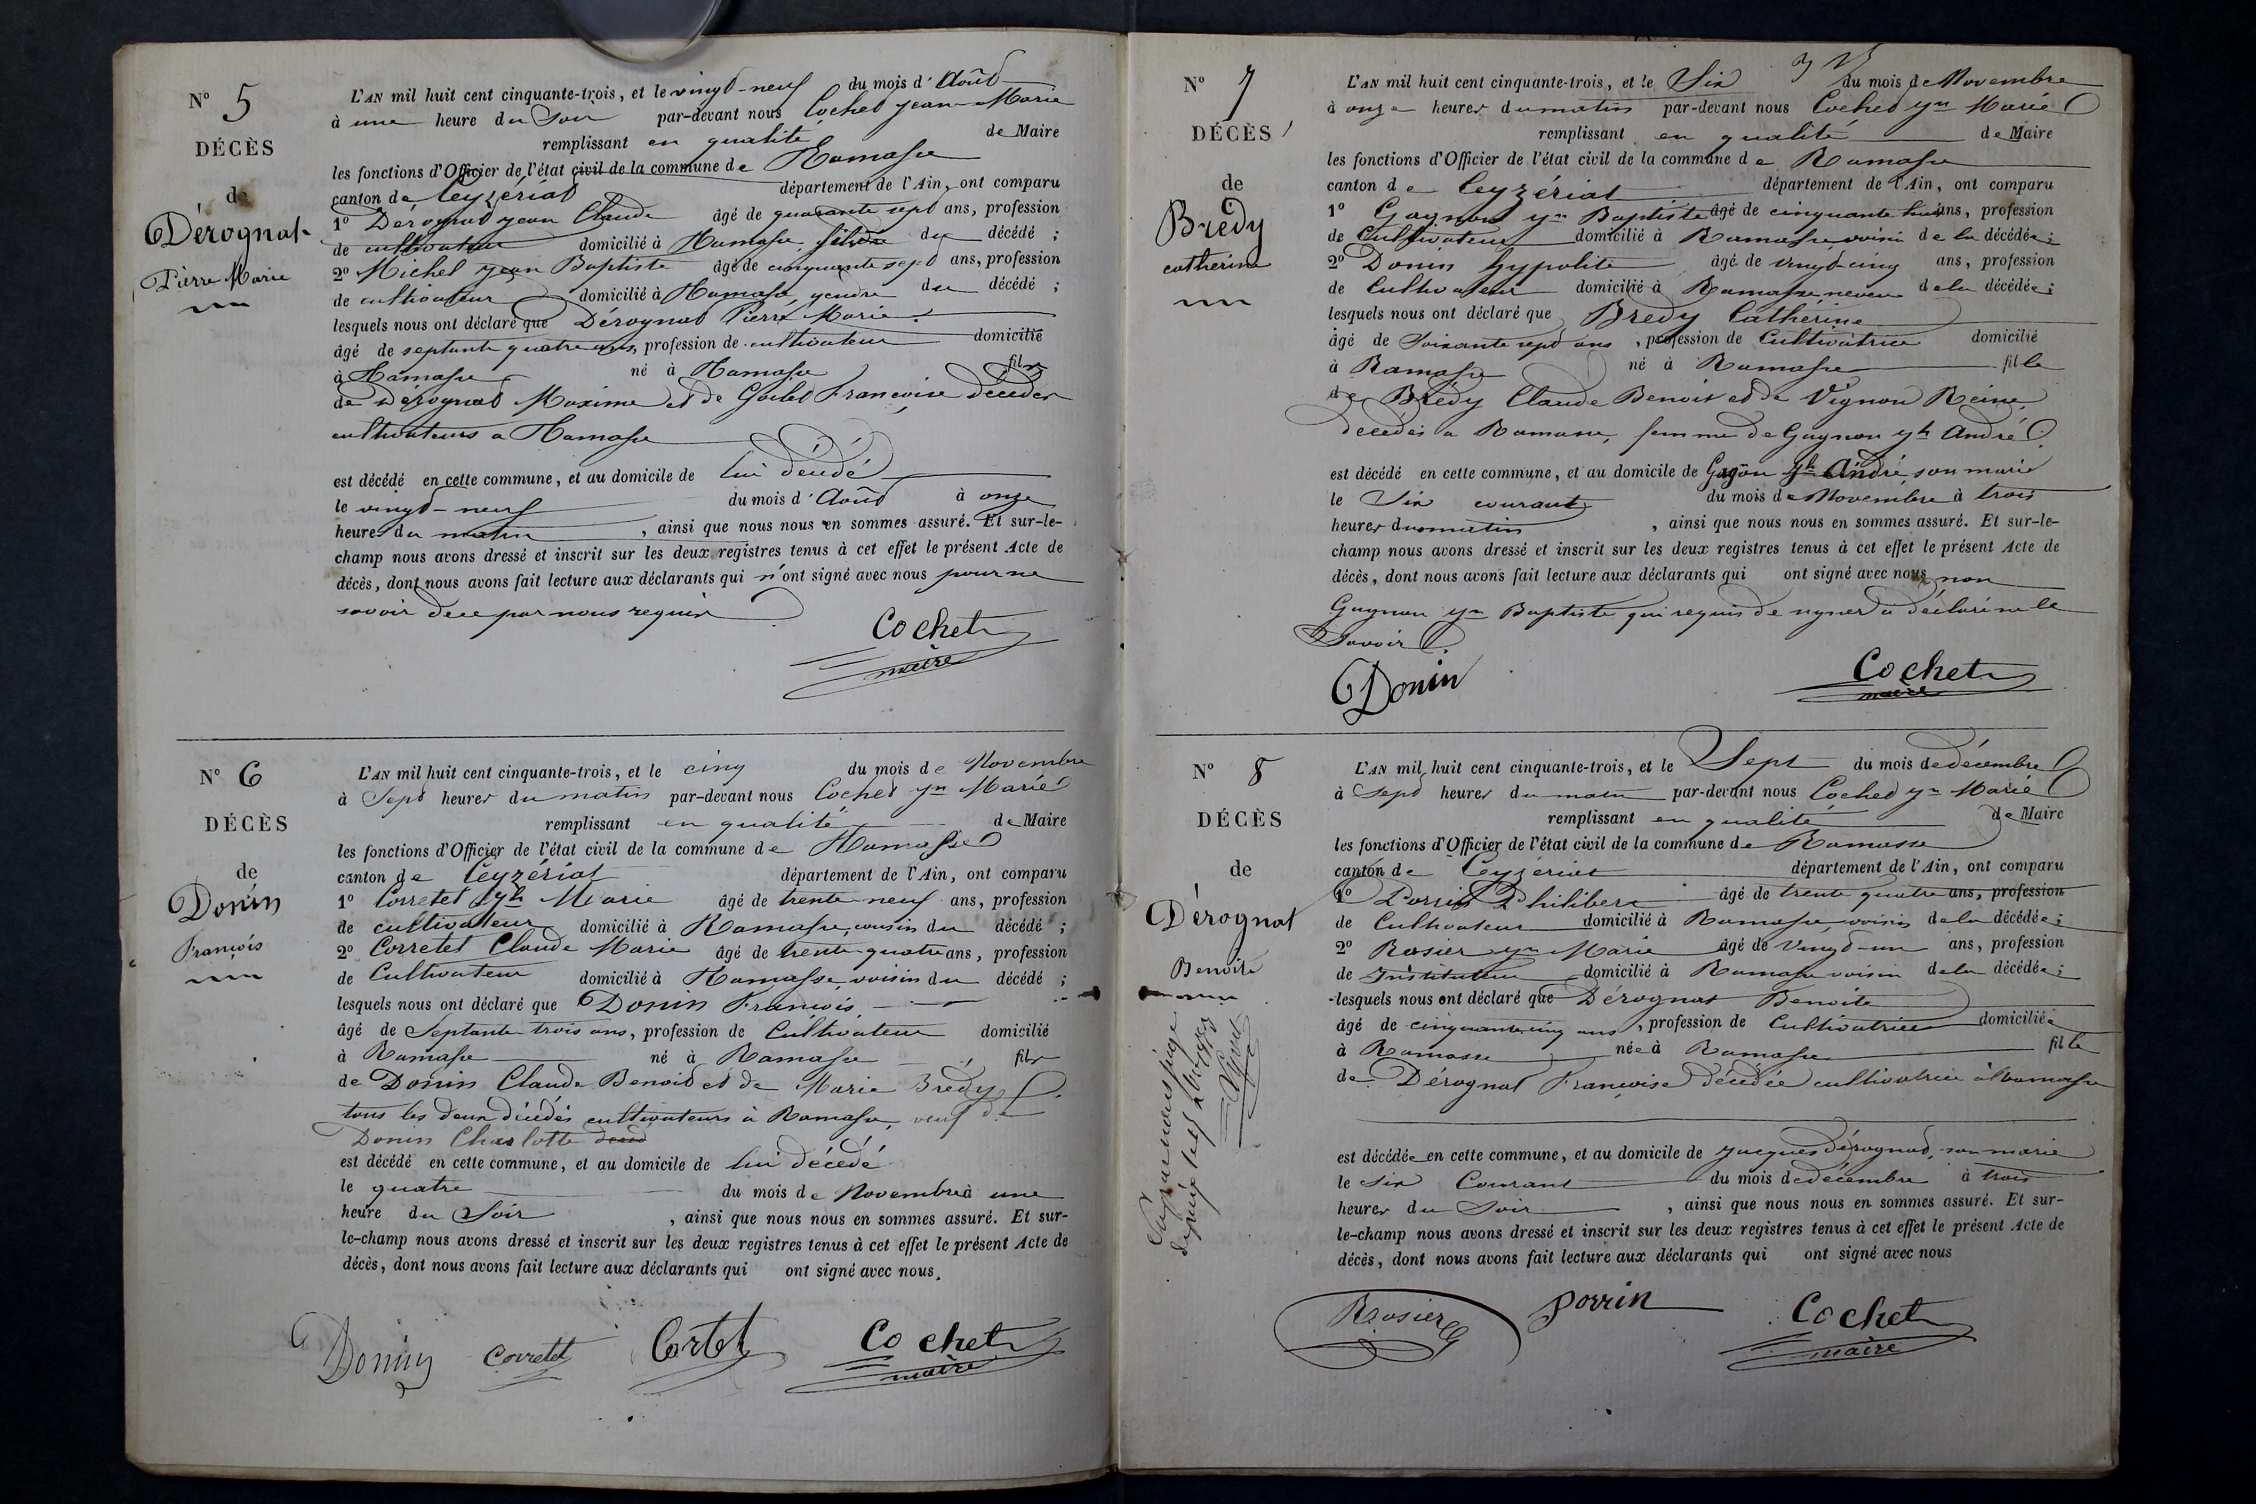 N° 5
DÉCÈS
de
Dérognat
Pierre Marie
L'AN mil huit cent cinquante-trois, et le vingt-neuf du mois d'Août
à une heure du Soir par-devant nous Cochet Jean-Marie
remplissant en qualité de Maire
les fonctions d'Officier de l'état civil de la commune de Ramasse
canton de Ceyzériat département de l'Ain, ont comparu
1° Dérognat Jean Claude âgé de quarante sept ans, profession
de cultivateur domicilié à Ramasse, fils du décédé ;
2° Michel Jean Baptiste âgé de cinquante sept ans, profession
de cultivateur domicilié à Ramasse, gendre du décédé ;
lesquels nous ont déclaré que Dérognat Pierre Marie
âgé de septante quatre ans, profession de cultivateur domicilié
à Ramasse né à Ramasse fils
de Dérognat Maxime et de Françoise décédés
cultivateurs a Ramasse
est décédé en cette commune, et au domicile de lui décédé
le vingt-neuf du mois d'Août à onze
heures du matin, ainsi que nous nous en sommes assuré. Et sur-le-
champ nous avons dressé et inscrit sur les deux registres tenus à cet effet le présent Acte de
décès, dont nous avons fait lecture aux déclarants qui n'ont signé avec nous pour ne
savoir de ce par nous requis
Cochet
maire
N° 6
DÉCÈS
de
Donin
François
L'AN mil huit cent cinquante-trois, et le cinq du mois de Novembre
à Sept heures du matin par-devant nous Cochet Jn Marie
remplissant en qualité de Maire
les fonctions d'Officier de l'état civil de la commune de Ramasse
canton de Ceyzériat département de l'Ain, ont comparu
1° Corretet Jh Marie âgé de trente neuf ans, profession
de cultivateur domicilié à Ramasse, cousin du décédé ;
2° Corretet Claude Marie âgé de trente quatre ans, profession
de Cultivateur domicilié à Ramasse, voisin du décédé ;
lesquels nous ont déclaré que Donin François
âgé de Septante trois ans, profession de Cultivateur domicilié
à Ramasse né à Ramasse fils
de Donin Claude Benoit et de Marie Brédy
tous les deux décédés cultivateurs à Ramasse, veuf de
Donin Charlotte
est décédé en cette commune, et au domicile de lui décédé
le quatre du mois de Novembre à une
heure du Soir, ainsi que nous nous en sommes assuré. Et sur-
le-champ nous avons dressé et inscrit sur les deux registres tenus à cet effet le présent Acte de
décès, dont nous avons fait lecture aux déclarants qui ont signé avec nous.
Donin Corretet Cortet Cochet
maire
N° 7
DÉCÈS
de
Brédy
catherine
L'AN mil huit cent cinquante-trois, et le Six du mois de Novembre
à onze heures du matin par-devant nous Cochet Jn Marie
remplissant en qualité de Maire
les fonctions d'Officier de l'état civil de la commune de Ramasse
canton de Ceyzériat département de l'Ain, ont comparu
1° Gagnon Jn Baptiste âgé de cinquante huit ans, profession
de Cultivateur domicilié à Ramasse voisin de la décédée ;
2° Donin hypolite âgé de vingt-cinq ans, profession
de Cultivateur domicilié à Ramasse neveu de la décédée ;
lesquels nous ont déclaré que Brédy Catherine
âgé de Soixante sept ans, profession de Cultivatrice domicilié
à Ramasse né à Ramasse fille
de Brédy Claude Benoit et de Vignon Reine,
décédés a Ramasse, femme de Gagnon Jh André
est décédé en cette commune, et au domicile de Gagnon Jh André, son marie
le Six courant du mois de Novembre à trois
heures du matin, ainsi que nous nous en sommes assuré. Et sur-le-
champ nous avons dressé et inscrit sur les deux registres tenus à cet effet le présent Acte de
décès, dont nous avons fait lecture aux déclarants qui ont signé avec nous non
Gagnon Jn Baptiste qui requis de signer a déclaré ne le
Savoir
Donin
Cochet
maire
N° 8
DÉCÈS
de
Dérognat
Benoite
L'AN mil huit cent cinquante-trois, et le Sept du mois de décembre
à Sept heures du matin par-devant nous Cochet Jn Marie
remplissant en qualité de Maire
les fonctions d'Officier de l'état civil de la commune de Ramasse
canton de Ceyzériat département de l'Ain, ont comparu
1° Porrin Philibert âgé de trente quatre ans, profession
de Cultivateur domicilié à Ramasse, voisin de la décédée ;
2° Rosier Jn Marie âgé de Vingt-un ans, profession
de Instituteur domicilié à Ramasse voisin de la décédée ;
lesquels nous ont déclaré que Dérognat Benoite
âgé de cinquante cinq ans, profession de Cultivatrice domiciliée
à Ramasse née à Ramasse fille
de Dérognat Françoise décédée cultivatrice à Ramasse
est décédée en cette commune, et au domicile de Jacques Dérognat, son marie
le Six Courant du mois de décembre à trois
heures du Soir, ainsi que nous nous en sommes assuré. Et sur-
le-champ nous avons dressé et inscrit sur les deux registres tenus à cet effet le présent Acte de
décès, dont nous avons fait lecture aux déclarants qui ont signé avec nous
Rosier porrin Cochet
maire